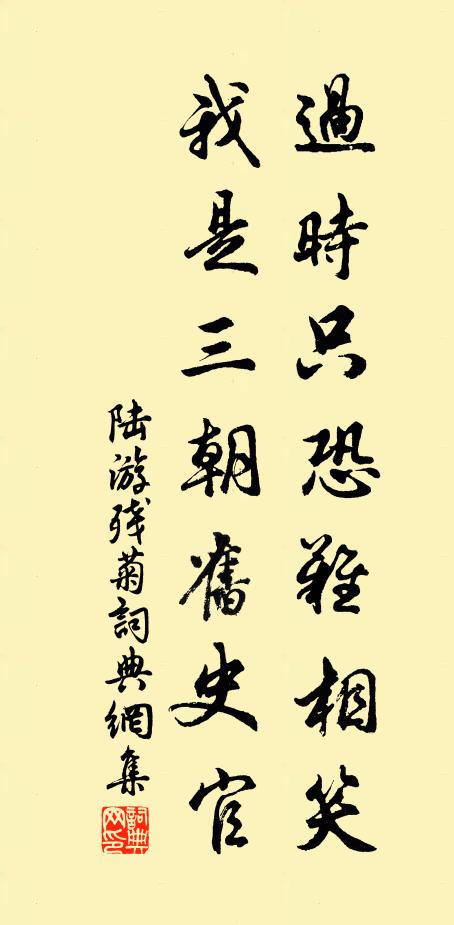 過時只恐難相笑
我是三朝舊史官
陆游残菊詞典網集
詞典网印